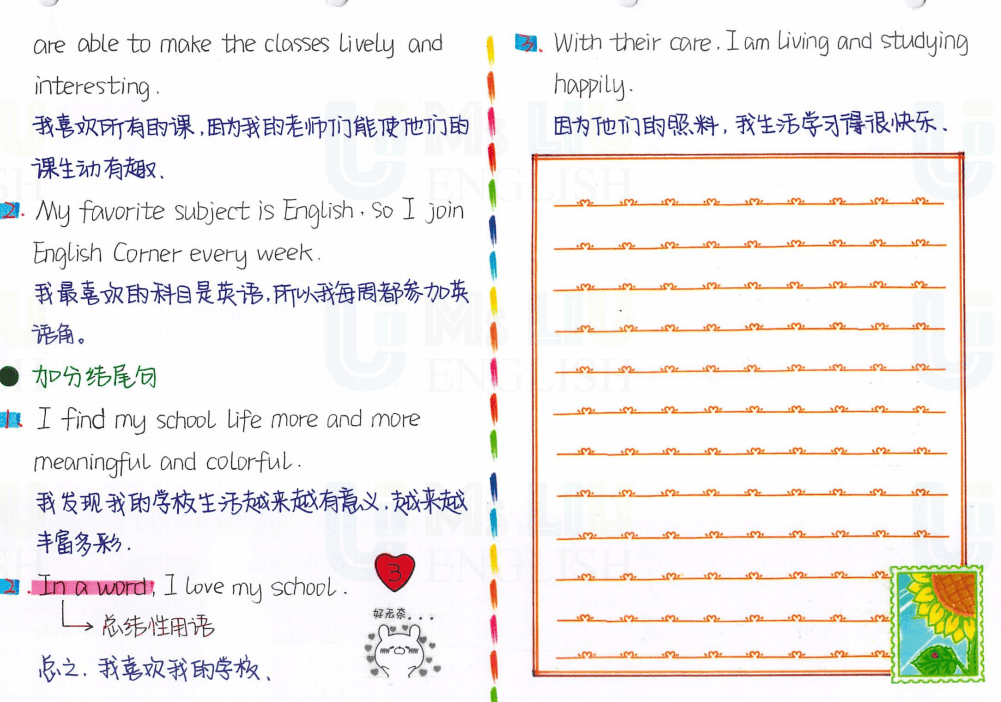 are able to make the classes lively and
interesting.
我喜欢所有的课,因为我的老师们能使他们的
课生动有趣.
2. My favorite subject is English. So I join
English Corner every week.
我最喜欢的科目是英语,所以我每周都参加英
语角。
加分结尾句
1. I find my school life more and more
meaningful and colorful.
我发现我的学校生活越来越有意义.越来越
丰富多彩.
2. In a word, I love my school.
总结性用语
总之.我喜欢我的学校.
3
好无奈...
3. With their care. I am living and studying
happily.
因为他们的照料,我生活学习得很快乐.